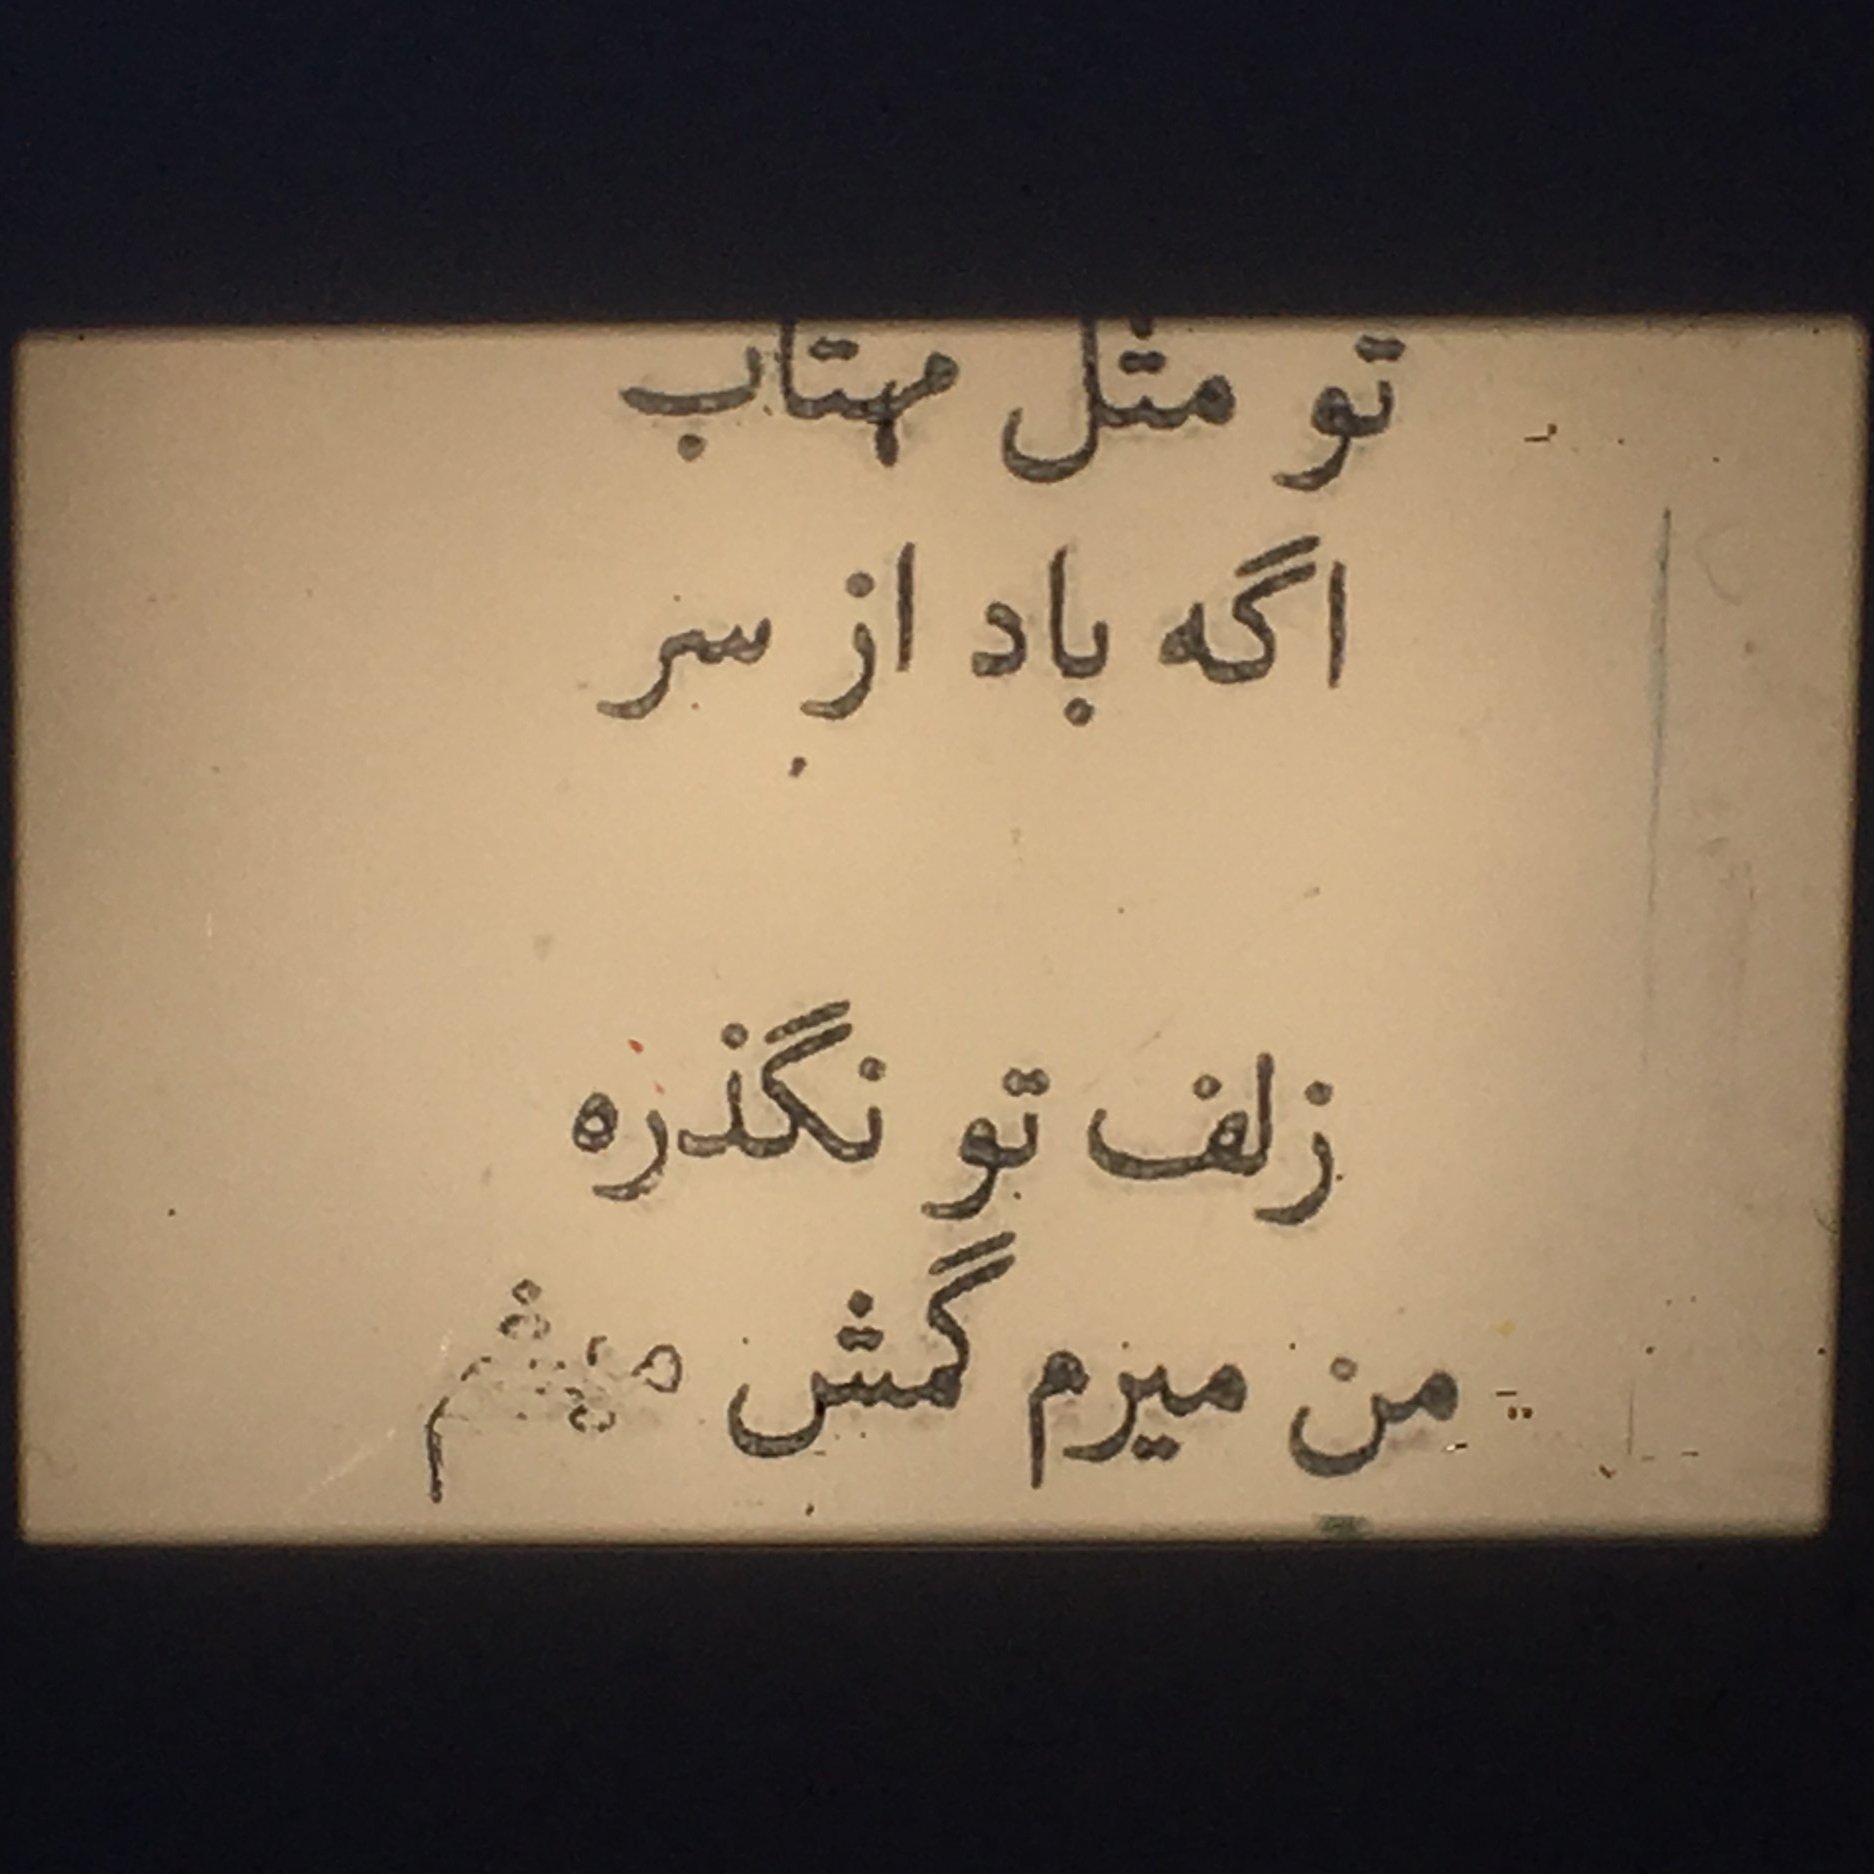 تو مثل مهتاب
اگه باد از سر
زلف تو نگذره
من میرم گمش میشم